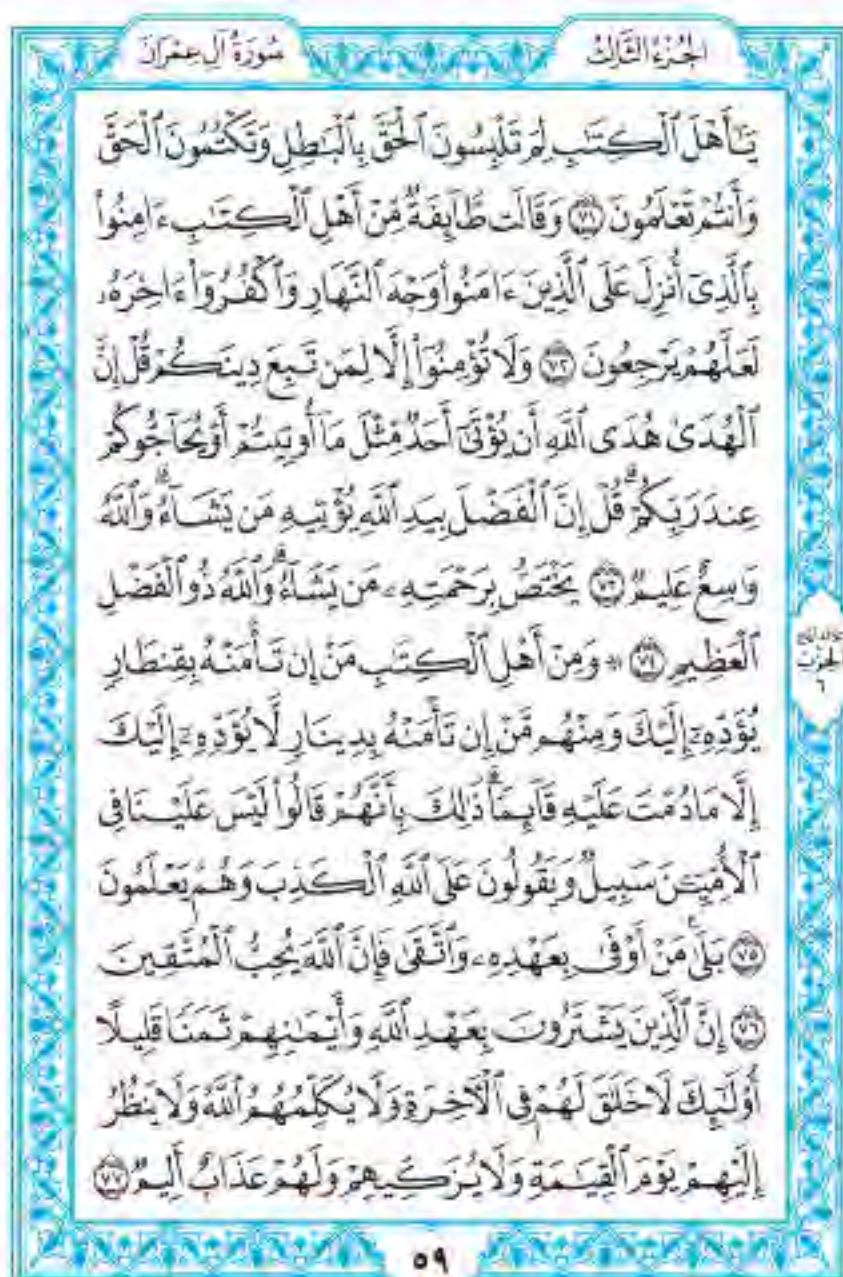 الجزء الثالث
سورة آل عمران
يَـٰٓأَهْلَ ٱلْكِتَـٰبِ لِمَ تَلْبِسُونَ ٱلْحَقَّ بِٱلْبَـٰطِلِ وَتَكْتُمُونَ ٱلْحَقَّ
وَأَنتُمْ تَعْلَمُونَ ٧١ وَقَالَت طَّآئِفَةٌ مِّنْ أَهْلِ ٱلْكِتَـٰبِ ءَامِنُوا۟
بِٱلَّذِىٓ أُنزِلَ عَلَى ٱلَّذِينَ ءَامَنُوا۟ وَجْهَ ٱلنَّهَارِ وَٱكْفُرُوٓا۟ ءَاخِرَهُۥ
لَعَلَّهُمْ يَرْجِعُونَ ٧٢ وَلَا تُؤْمِنُوٓا۟ إِلَّا لِمَن تَبِعَ دِينَكُمْ قُلْ إِنَّ
ٱلْهُدَىٰ هُدَى ٱللَّهِ أَن يُؤْتَىٰٓ أَحَدٌ مِّثْلَ مَآ أُوتِيتُمْ أَوْ يُحَآجُّوكُمْ
عِندَ رَبِّكُمْ ۗ قُلْ إِنَّ ٱلْفَضْلَ بِيَدِ ٱللَّهِ يُؤْتِيهِ مَن يَشَآءُ ۗ وَٱللَّهُ
وَٰسِعٌ عَلِيمٌ ٧٣ يَخْتَصُّ بِرَحْمَتِهِۦ مَن يَشَآءُ ۗ وَٱللَّهُ ذُو ٱلْفَضْلِ
ٱلْعَظِيمِ ٧٤ ۞ وَمِنْ أَهْلِ ٱلْكِتَـٰبِ مَنْ إِن تَأْمَنْهُ بِقِنطَارٍ
يُؤَدِّهِۦٓ إِلَيْكَ وَمِنْهُم مَّنْ إِن تَأْمَنْهُ بِدِينَارٍ لَّا يُؤَدِّهِۦٓ إِلَيْكَ
إِلَّا مَا دُمْتَ عَلَيْهِ قَآئِمًا ۗ ذَٰلِكَ بِأَنَّهُمْ قَالُوا۟ لَيْسَ عَلَيْنَا فِى
ٱلْأُمِّيِّـۧنَ سَبِيلٌ وَيَقُولُونَ عَلَى ٱللَّهِ ٱلْكَذِبَ وَهُمْ يَعْلَمُونَ
٧٥ بَلَىٰ مَنْ أَوْفَىٰ بِعَهْدِهِۦ وَٱتَّقَىٰ فَإِنَّ ٱللَّهَ يُحِبُّ ٱلْمُتَّقِينَ
٧٦ إِنَّ ٱلَّذِينَ يَشْتَرُونَ بِعَهْدِ ٱللَّهِ وَأَيْمَـٰنِهِمْ ثَمَنًا قَلِيلًا
أُو۟لَـٰٓئِكَ لَا خَلَـٰقَ لَهُمْ فِى ٱلْـَٔاخِرَةِ وَلَا يُكَلِّمُهُمُ ٱللَّهُ وَلَا يَنظُرُ
إِلَيْهِمْ يَوْمَ ٱلْقِيَـٰمَةِ وَلَا يُزَكِّيهِمْ وَلَهُمْ عَذَابٌ أَلِيمٌ ٧٧
الحزب
٦
٥٩